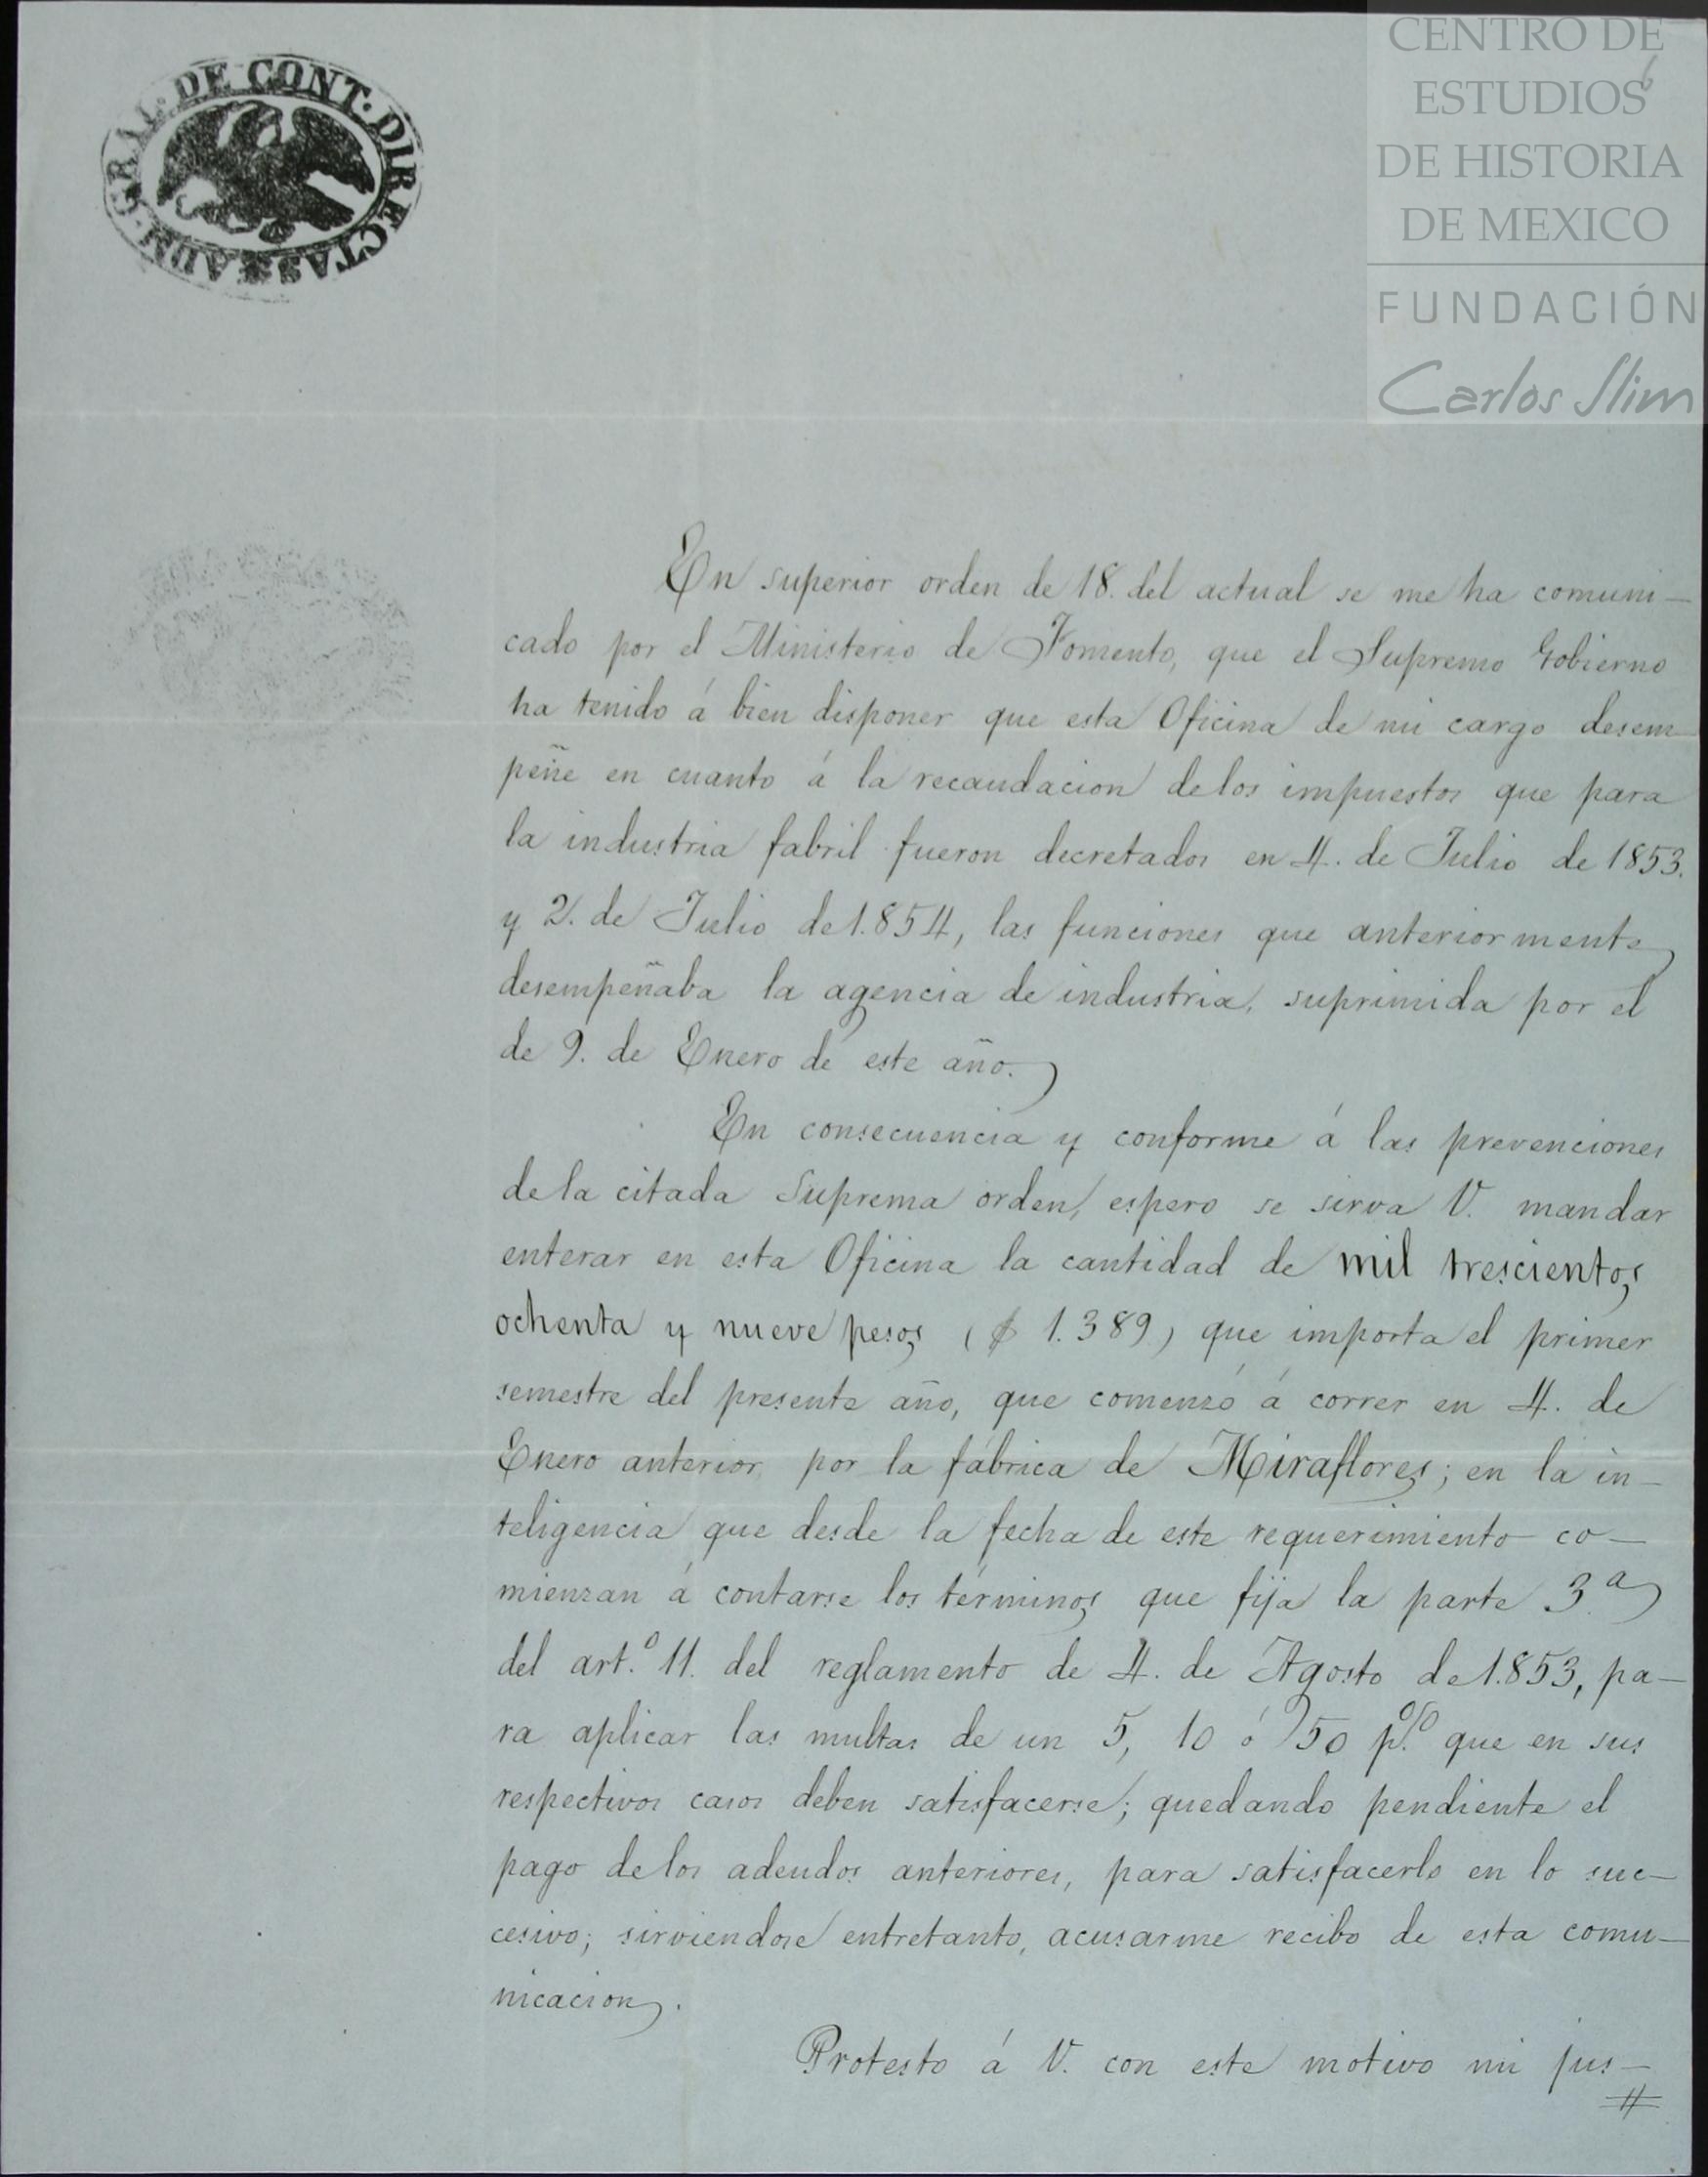 ADM. GRAL. DE CONT. DIRECTAS
CENTRO DE
ESTUDIOS
DE HISTORIA
DE MEXICO
FUNDACIÓN
Carlos Slim
En superior orden de 18. del actual se me ha comuni-
cado por el Ministerio de Fomento, que el Supremo Gobierno
ha tenido á bien disponer que esta Oficina de mi cargo desem-
peñe en cuanto á la recaudacion de los impuestos que para
la industria fabril fueron decretados en 4. de Julio de 1853.
y 2. de Julio de 1.854, las funciones que anteriormente
desempeñaba la agencia de industria, suprimida por el
de 9. de Enero de este año.
En consecuencia y conforme á las prevenciones
de la citada Suprema orden, espero se sirva V. mandar
enterar en esta Oficina la cantidad de mil trescientos
ochenta y nueve pesos ($ 1.389) que importa el primer
semestre del presente año, que comenzó á correr en 4. de
Enero anterior por la fábrica de Miraflores; en la in-
teligencia que desde la fecha de este requerimiento co-
mienzan á contarse los términos que fija la parte 3.ª
del art.º 11. del reglamento de 4. de Agosto de 1.853, pa-
ra aplicar las multas de un 5, 10 ó 50 p.% que en sus
respectivos casos deben satisfacerse; quedando pendiente el
pago de los adeudos anteriores, para satisfacerlo en lo suc-
cesivo; sirviendose entretanto, acusarme recibo de esta comu-
nicacion.
Protesto á V. con este motivo mi jus-